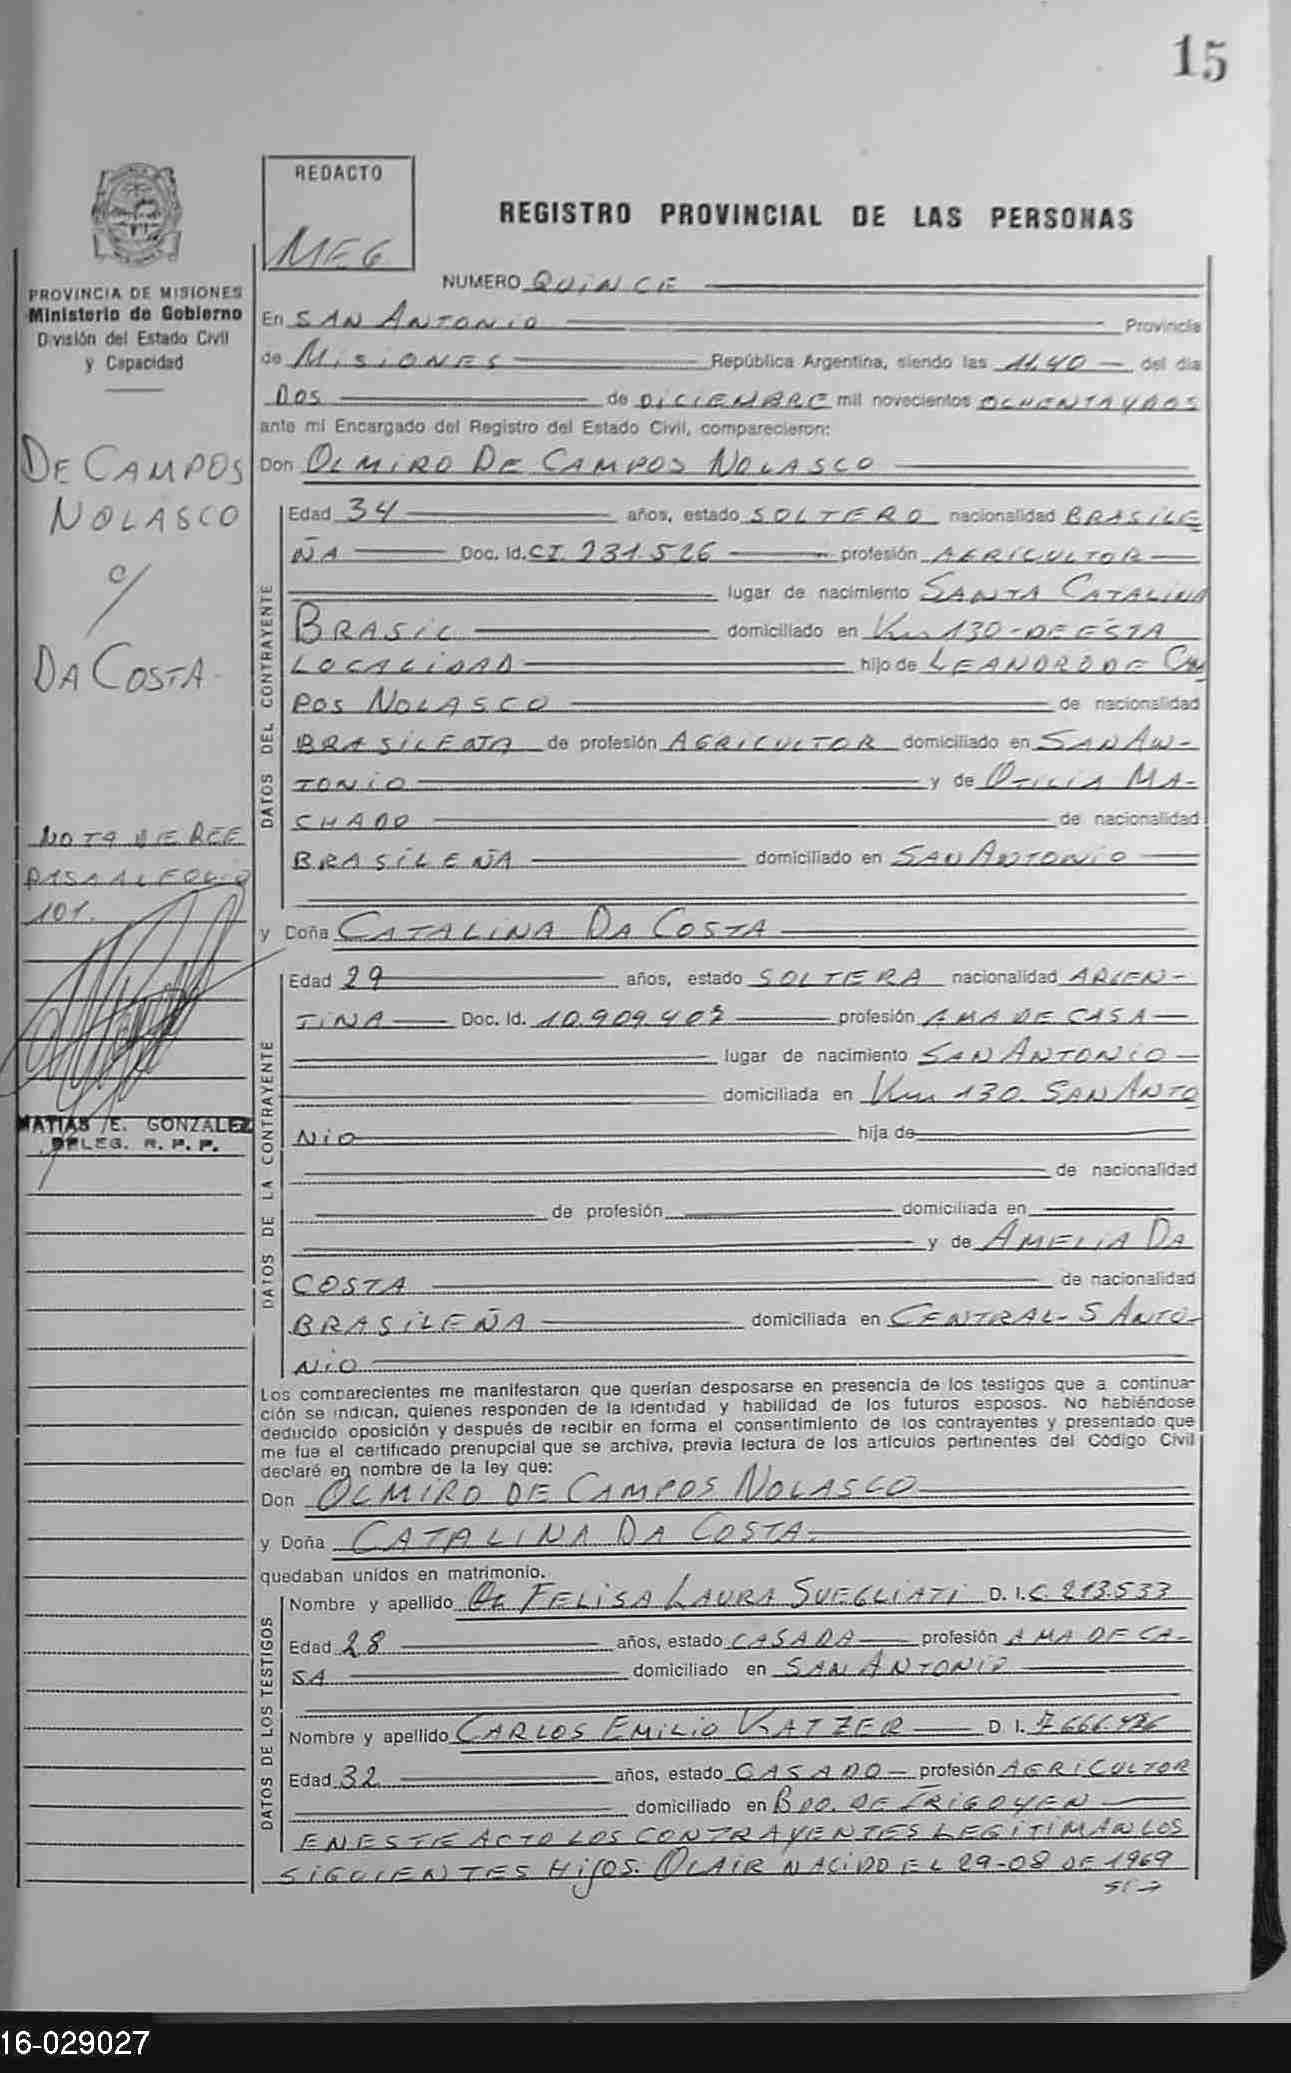 15
REDACTO
MEG
REGISTRO PROVINCIAL DE LAS PERSONAS
NUMERO QUINCE
PROVINCIA DE MISIONES
Ministerio de Gobierno
División del Estado Civil
y Capacidad
DE CAMPOS
NOLASCO
c/
DA COSTA-
NOTA DE REF
PASA AL FOLIO
101.
MATIAS E. GONZALEZ
DELEG. R. P. P.
En SAN ANTONIO Provincia
de MISIONES República Argentina, siendo las 11,40 del día
DOS de DICIEMBRE mil novecientos OCHENTA Y DOS
ante mi Encargado del Registro del Estado Civil, comparecieron:
Don OLMIRO DE CAMPOS NOLASCO
DATOS DEL CONTRAYENTE
Edad 34 años, estado SOLTERO nacionalidad BRASILE
ÑA Doc. Id. CI. 231.526 profesión AGRICULTOR
lugar de nacimiento SANTA CATALINA
BRASIL domiciliado en Km 130-DE ESTA
LOCALIDAD hijo de LEANDRO DE CAM
POS NOLASCO de nacionalidad
BRASILEÑA de profesión AGRICULTOR domiciliado en SAN AN-
TONIO y de OTILIA MA-
CHADO de nacionalidad
BRASILEÑA domiciliado en SAN ANTONIO
y Doña CATALINA DA COSTA
DATOS DE LA CONTRAYENTE
Edad 29 años, estado SOLTERA nacionalidad ARGEN-
TINA Doc. Id. 10.909.402 profesión AMA DE CASA
lugar de nacimiento SAN ANTONIO
domiciliada en Km 130. SAN ANTO
NIO hija de
de nacionalidad
de profesión domiciliada en
y de AMELIA DA
COSTA de nacionalidad
BRASILEÑA domiciliada en CENTRAL-S ANTO-
NIO
Los comparecientes me manifestaron que querían desposarse en presencia de los testigos que a continua-
ción se indican, quienes responden de la identidad y habilidad de los futuros esposos. No habiéndose
deducido oposición y después de recibir en forma el consentimiento de los contrayentes y presentado que
me fue el certificado prenupcial que se archiva, previa lectura de los artículos pertinentes del Código Civil
declaré en nombre de la ley que:
Don OLMIRO DE CAMPOS NOLASCO
y Doña CATALINA DA COSTA.
quedaban unidos en matrimonio.
DATOS DE LOS TESTIGOS
Nombre y apellido FELISA LAURA SUEGLIATI D. I. C. 213.533
Edad 28 años, estado CASADA profesión AMA DE CA-
SA domiciliado en SAN ANTONIO
Nombre y apellido CARLOS EMILIO KATZER D. I.
Edad 32 años, estado CASADO profesión AGRICULTOR
domiciliado en BDO. DE IRIGOYEN
EN ESTE ACTO LOS CONTRAYENTES LEGITIMAN LOS
SIGUIENTES HIJOS: OLAIR NACIDO EL 29-08 DE 1969
16-029027